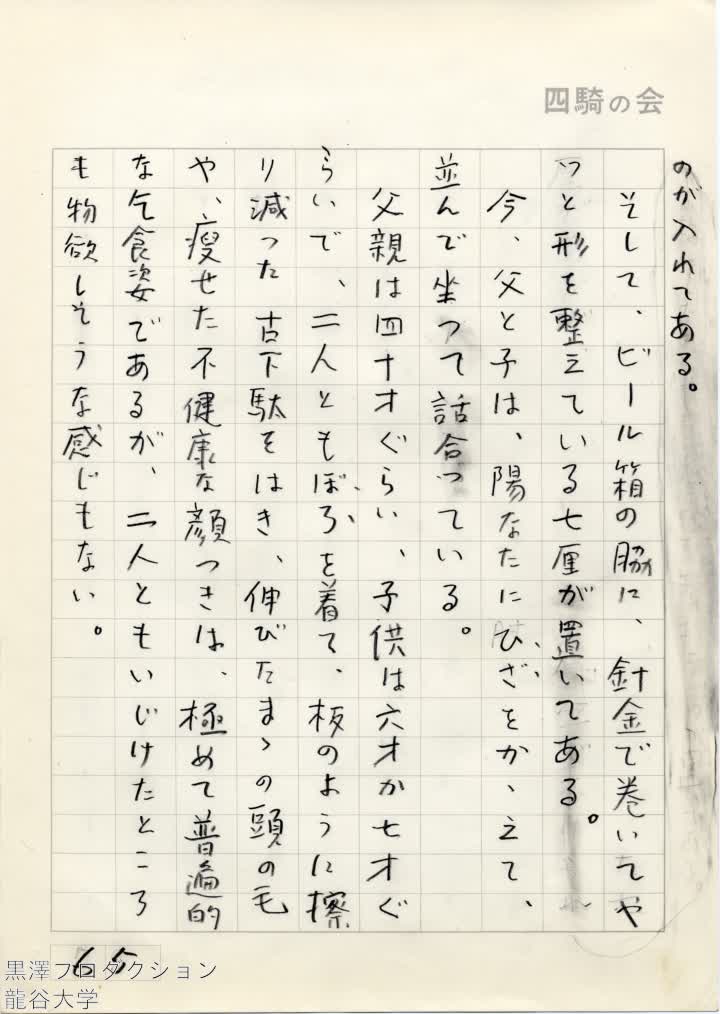 四騎の会
のが入れてある。
そして、ビール箱の脇に、針金で巻いてや
っと形を整えている七厘が置いてある。
今、父と子は、陽なたにひざをかゝえて、
並んで坐って話合っている。
父親は四十才ぐらい、子供は六才か七才ぐ
らいで、二人ともぼろを着て、板のように擦
り減った古下駄をはき、伸びたまゝの頭の毛
や、瘦せた不健康な顔つきは、極めて普遍的
な乞食姿であるが、二人ともいじけたところ
も物欲しそうな感じもない。
65
黒澤プロダクション
龍谷大学